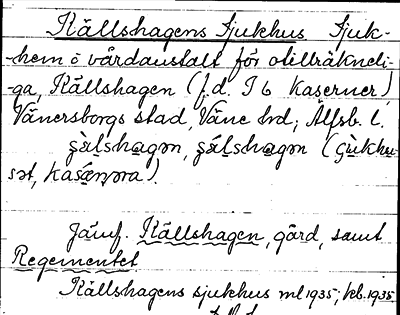 Källshagens sjukhus Sjuk-
-hem o vårdanstalt för otillräkneli-
-ga, Källshagen (f.d. I 6 Kaserner),
Vänersborgs stad, Väne hd; Älfsb. l.
şälshagən, şälshagən (şukhu-
sət, kasärŋəra).
Jämf. Källshagen, gård, samt
Regementet
Källshagens sjukhus ml 1935; kb. 1935